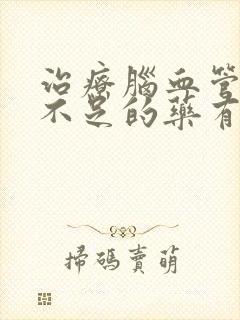 治療腦血管
不足的藥有
掃碼賣萌